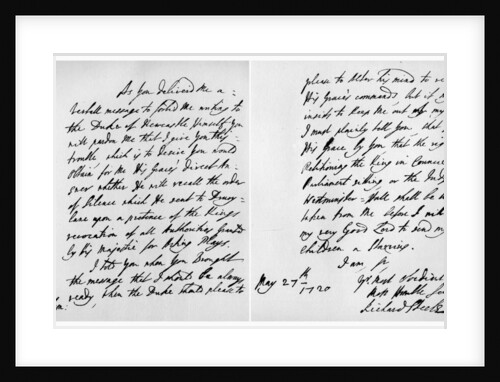 As you delivered me a
Verball message to forbid me writing to
the Duke of Newcastle Himself you
will pardon me that I give you this
trouble, which is to desire you would
obtain for me His Grace's Direct An
swer whether He will recall the order
of Silence which He sent to Drury-
Lane upon a pretence of the Kings
revocation of all Authorities granted
by his Majestie for Acting Plays.
I told you when you Brought
the message that I should be alway
ready, when the Duke shall please to
please to alter his mind to
His Grace's commands, but if
insists to keep me out of my
I must plainly tell you that
His Grace by you that the
Petitioning the King in Councill
Parliament sitting or the
Westminster-Hall shall be
taken from me before I
my very Good Lord to
children a starving.
I am Sr
Yr. Most Obedient
Most Humble
Richard Steele
May 27th
1720